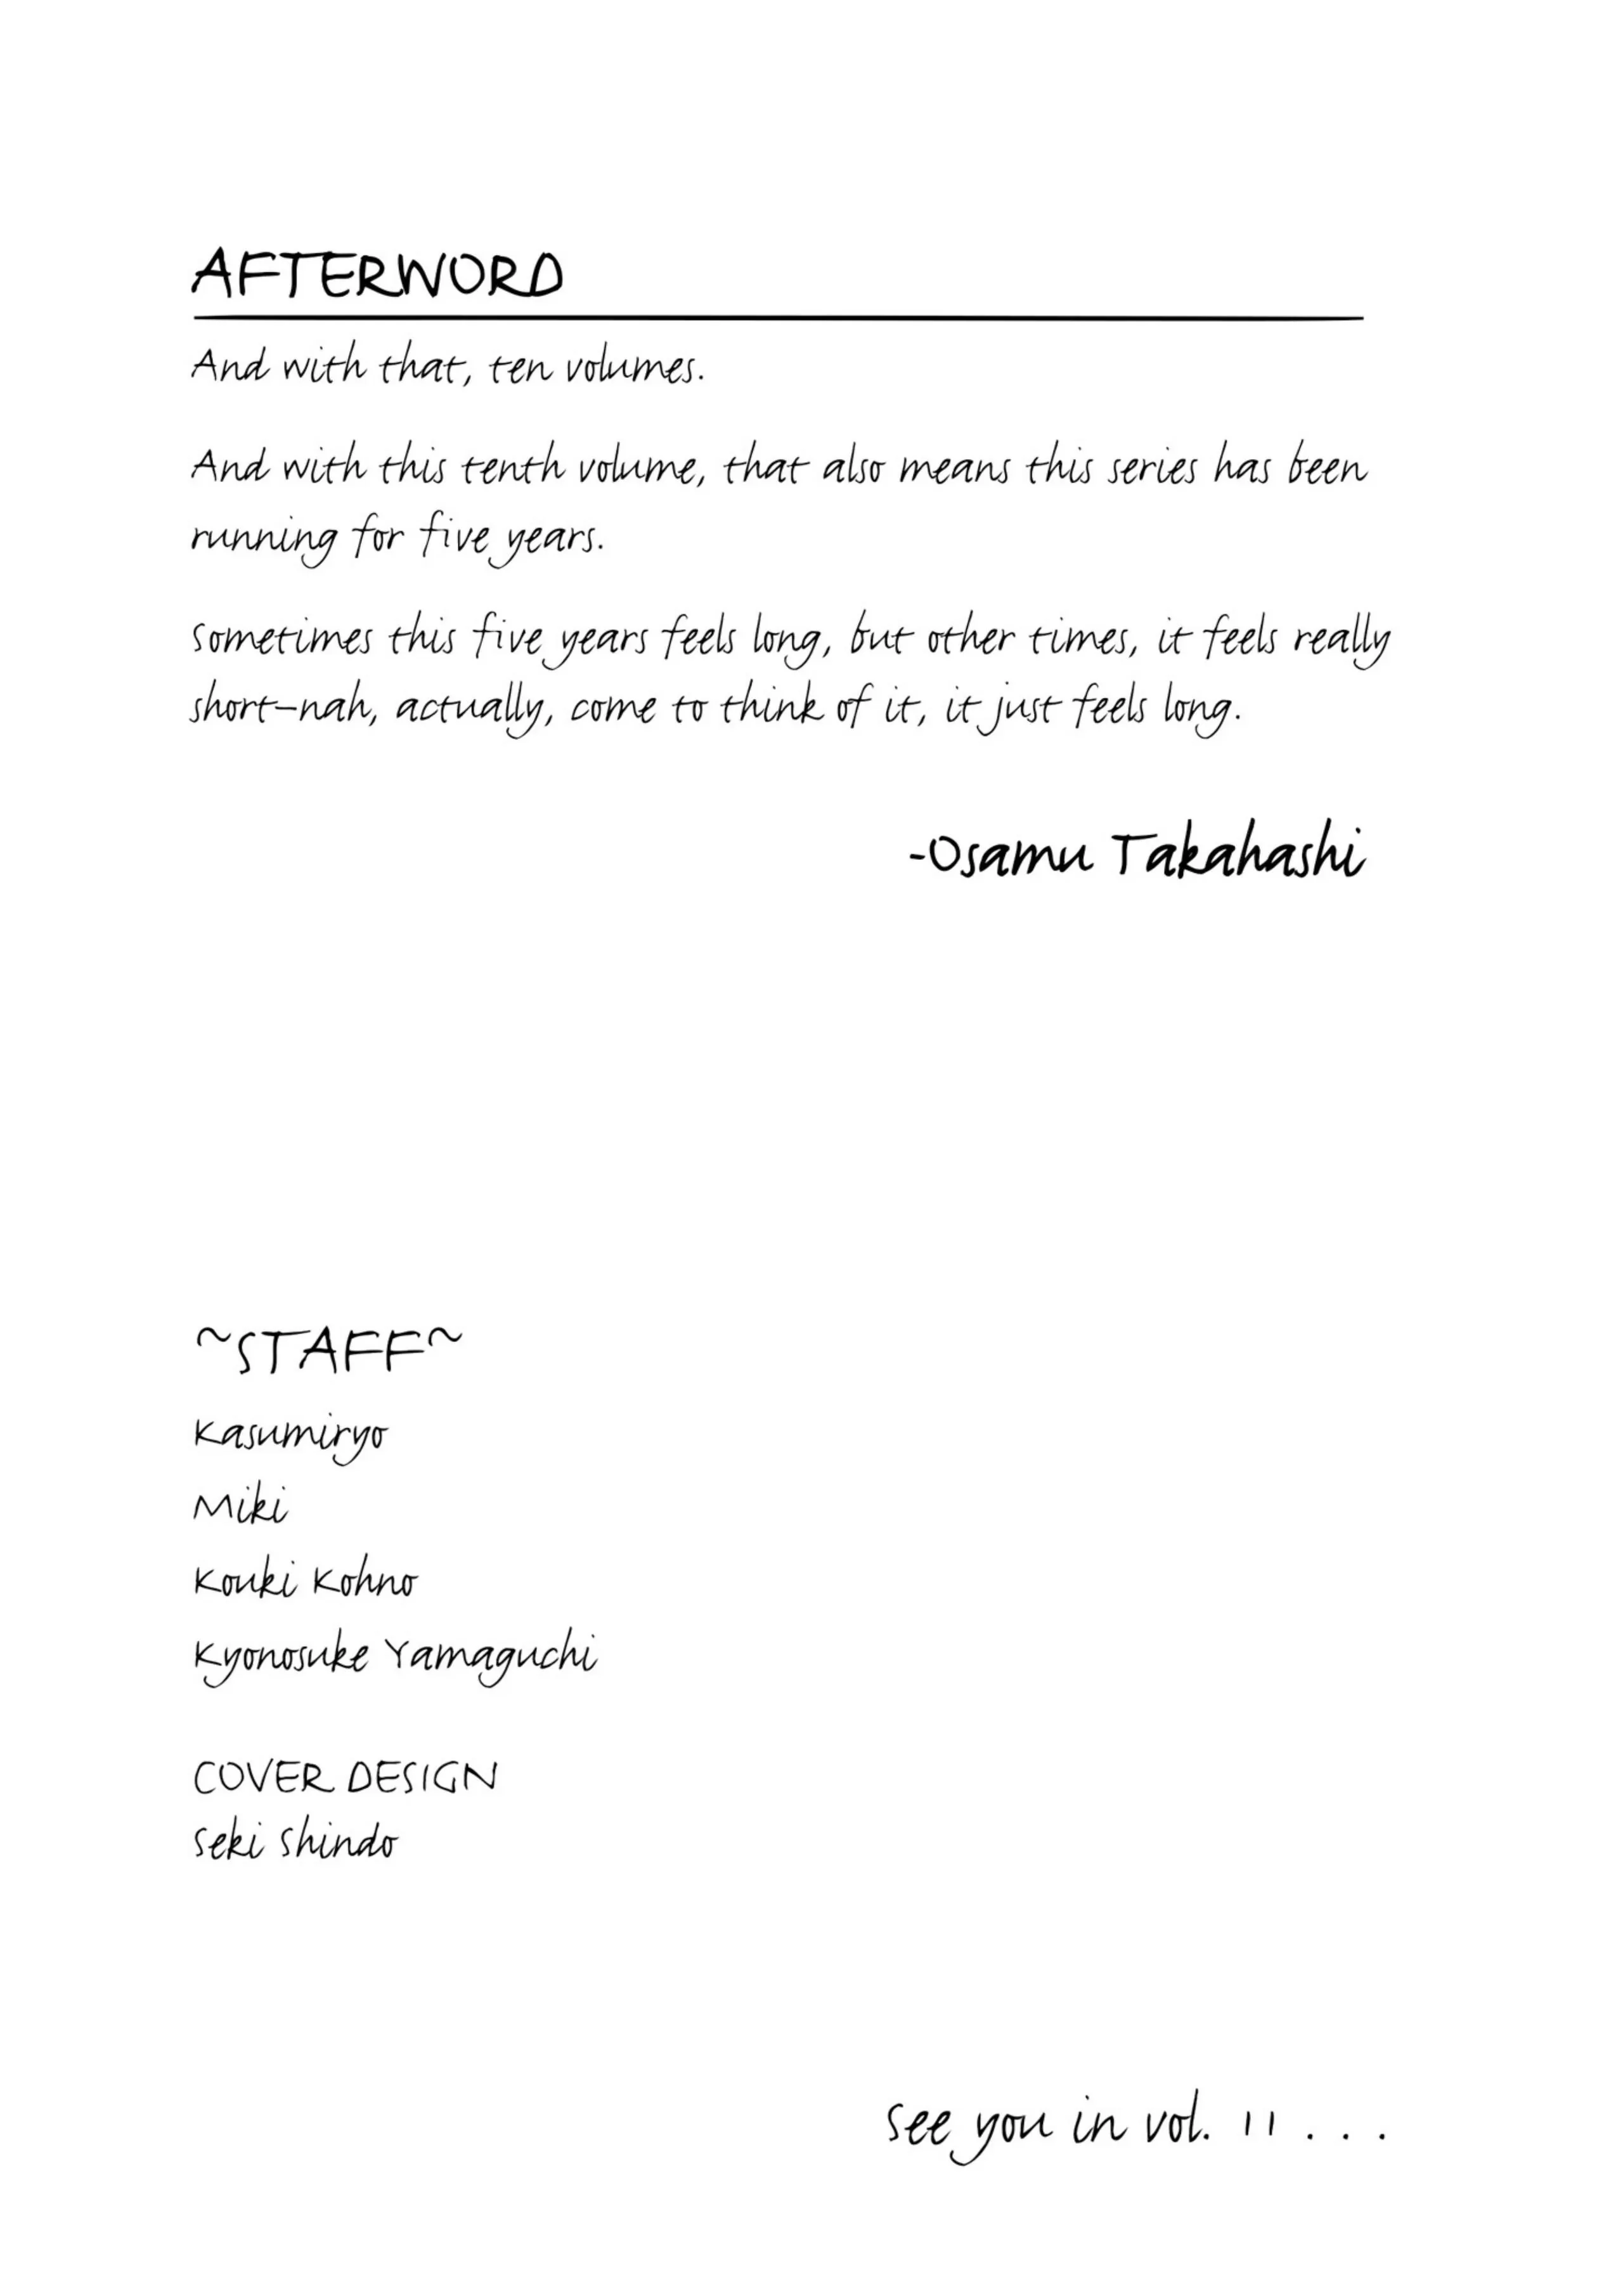 AFTERWORD
And with that, ten volumes.
And with this tenth volume, that also means this series has been
running for five years.
Sometimes this five years feels long, but other times, it feels really
short—nah, actually, come to think of it, it just feels long.
-Osamu Takahashi
~STAFF~
Kasumiryo
Miki
Kouki Kohno
Kyonosuke Yamaguchi
COVER DESIGN
Seki Shindo
See you in vol. 11 . . .